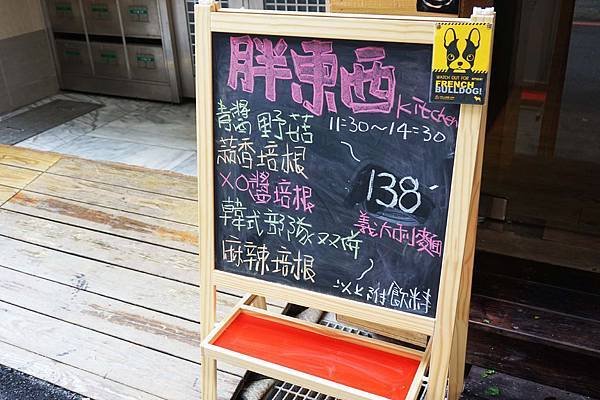 胖東西 Kitchen
11:30~14:30
青醬野菇
蒜香培根
XO醬培根
韓式部隊双响
麻辣培根
138
義大利麵
以上附飲料
WATCH OUT FOR
FRENCH
BULLDOG!